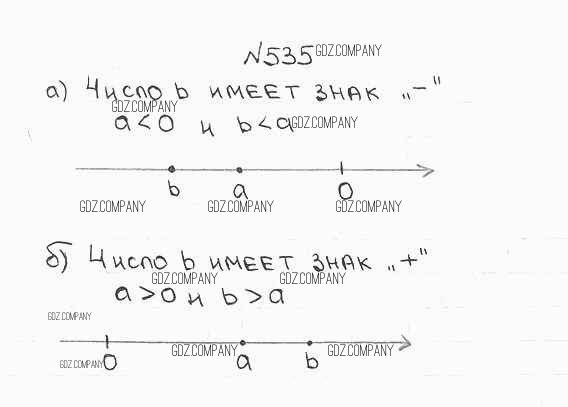 N535 GDZ.COMPANY
а) Число b имеет знак „-"
GDZ.COMPANY
a<0 и b<a GDZ.COMPANY
b a 0
GDZ.COMPANY GDZ.COMPANY GDZ.COMPANY
б) Число b имеет знак „+"
GDZ.COMPANY GDZ.COMPANY
a>0 и b>a
GDZ.COMPANY
GDZ.COMPANY GDZ.COMPANY
GDZ.COMPANY 0 a b